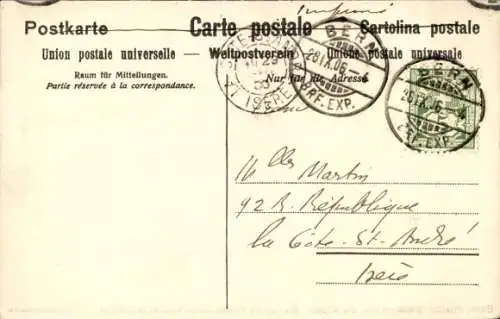 imprimé
Postkarte Carte postale Cartolina postale
Union postale universelle – Weltpostverein – Unione postale universale
Raum für Mitteilungen. Nur für die Adresse
Partie réservée à la correspondance.
BERN
28.IX.06
BRF. EXP.
BERN
28.IX.06
BRF. EXP.
ISERE
Martin
92 R. République
la Côte-St-André
Isère